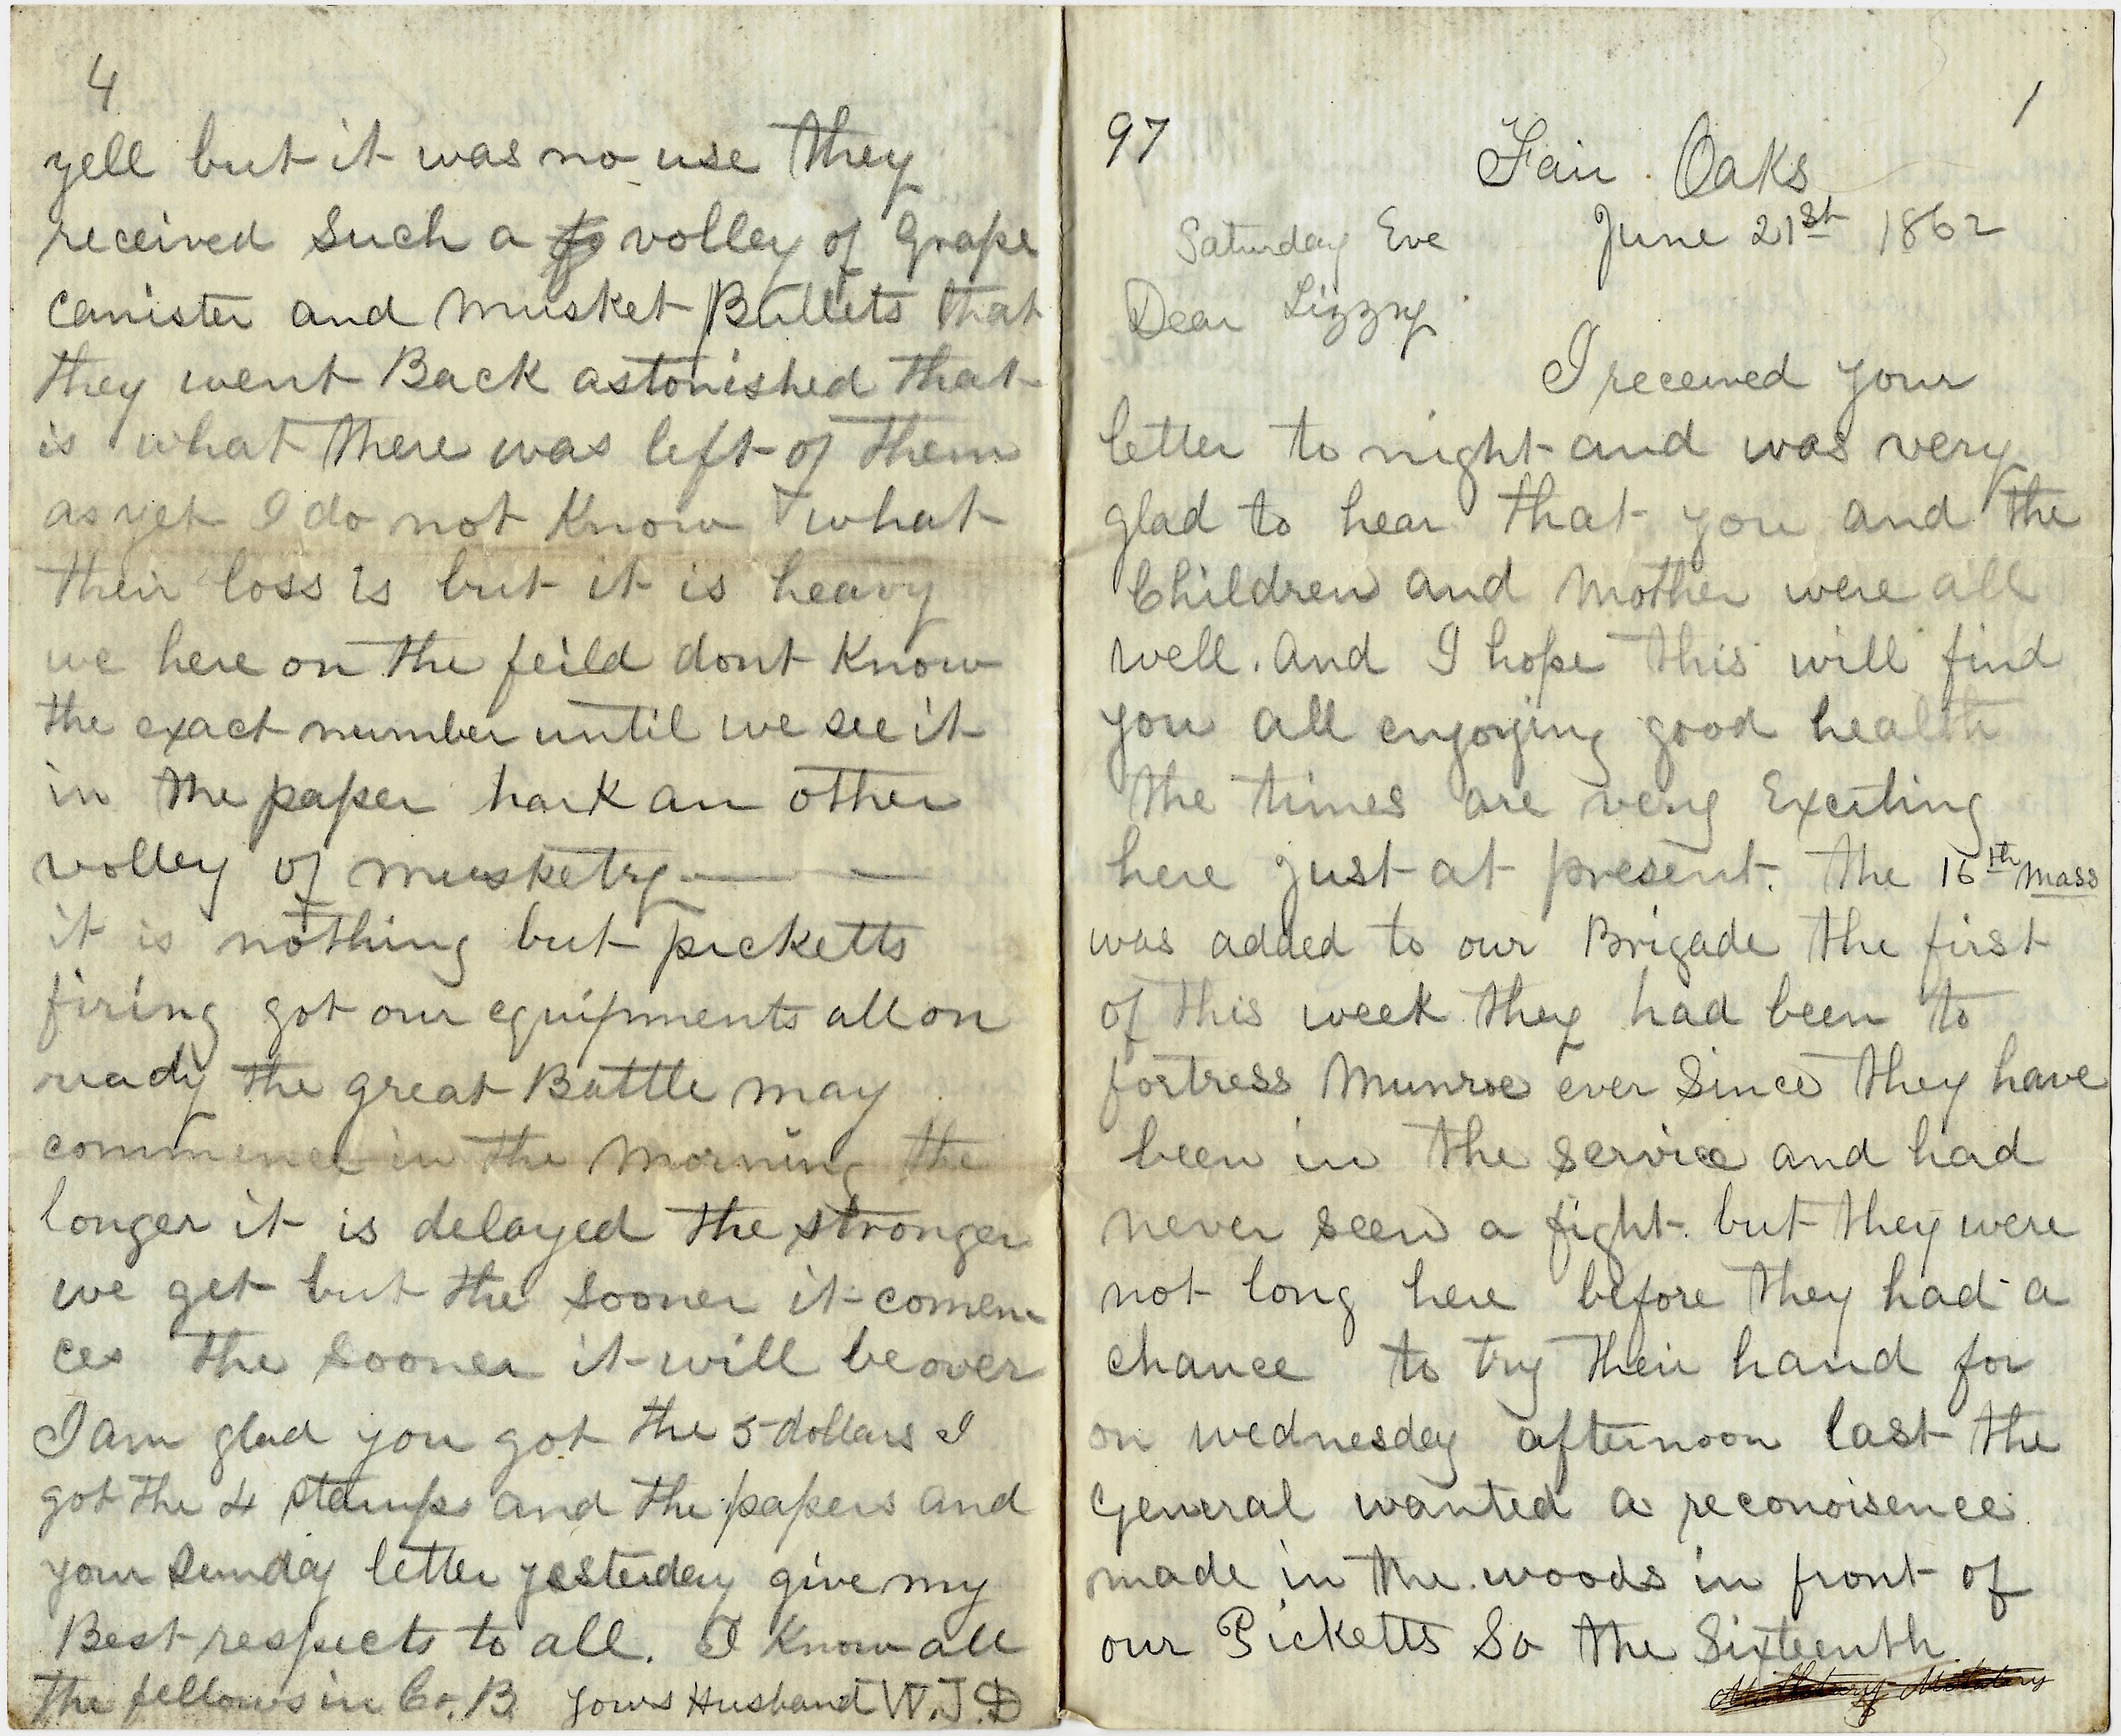 4
yell but it was no use they
received such a volley of Grape
canister and musket Bullets that
they went Back astonished that
is what there was left of them
as yet I do not know what
their loss is but it is heavy
we here on the feild dont know
the exact number until we see it
in the paper hark an other
volley of musketry — —
it is nothing but picketts
firing got our equipments all on
ready the great Battle may
commence in the morning the
longer it is delayed the stronger
we get but the sooner it comen
ces the sooner it will be over
I am glad you got the 5 dollars I
got the 4 stamps and the papers and
your Sunday letter yesterday give my
Best respects to all. I know all
the fellows in Co. B. yours Husband W. J. D
1
97 Fair Oaks
Saturday Eve June 21st 1862
Dear Lizzy
I received your
letter to night and was very
glad to hear that you and the
Children and Mother were all
well. And I hope this will find
you all enjoying good health
the times are very Exciting
here just at present. the 16th Mass
was added to our Brigade the first
of this week they had been to
fortress Munroe ever Since they have
been in the service and had
never seen a fight. but they were
not long here before they had a
chance to try their hand for
on wednesday afternoon last the
General wanted a reconoisence
made in the woods in front of
our Picketts So the Sixteenth